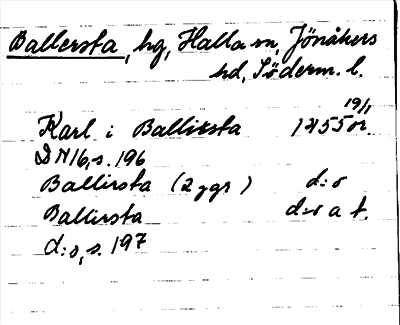 Ballersta, hg, Halla sn, Jönåkers
hd, Söderm. l.
19/1
Karl i Ballirsta 1455 or.
DN 16, s. 196
Ballirsta (2 ggr) d:o
Ballirsta d:o a t.
d:o, s. 197